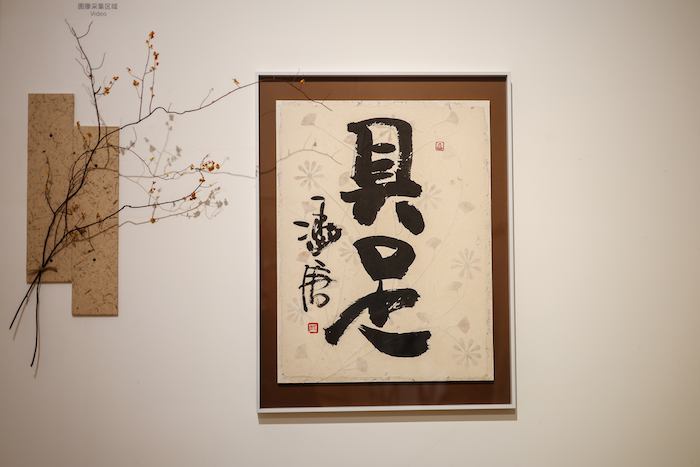 图像采集区域
Video
具足